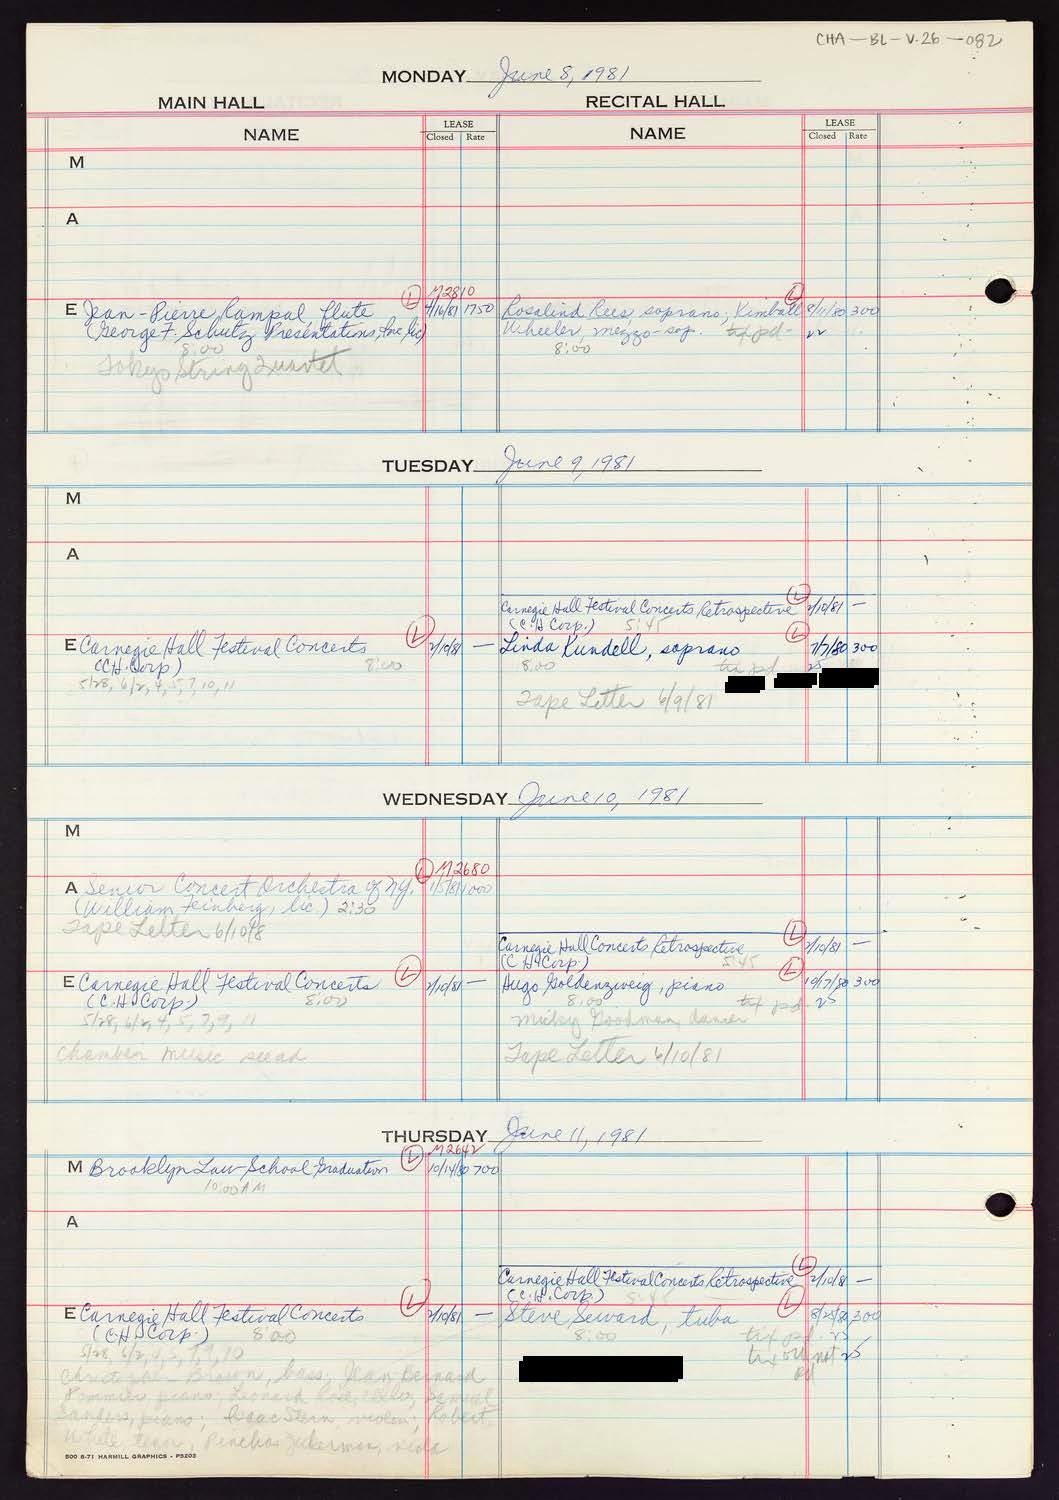 CHA-BL-V.26-082
MONDAY June 8, 1981
MAIN HALL
RECITAL HALL
NAME
LEASE
Closed Rate
NAME
LEASE
Closed Rate
M
A
L M2810
E Jean-Pierre Rampal flute 4/16/81 1750
(George F. Schutz Presentations, Inc, lic)
8:00
Tokyo String Quartet
L
Rosalind Rees soprano; Kimball 8/11/80 300
Wheeler, mezzo-sop. tix pd-
8:00
TUESDAY June 9, 1981
M
A
L
E Carnegie Hall Festival Concerts 2/10/81 —
(C.H. Corp) 8:00
5/28, 6/2, 4, 5, 7, 10, 11
L
Carnegie Hall Festival Concerts Retrospective 2/10/81 —
(C.H. Corp.) 5:45
L
Linda Kundell, soprano 7/7/80 300
8:00 tix pd 25
Tape Letter 6/9/81
WEDNESDAY June 10, 1981
M
L M2680
A Senior Concert Orchestra of NY. 1/5/81 1000
(William Feinberg, lic.) 2:30
Tape Letter 6/10/8
L
E Carnegie Hall Festival Concerts 2/10/81 —
(C.H. Corp.) 8:00
5/28, 6/2, 4, 5, 7, 9, 11
Chamber music
L
Carnegie Hall Concerts Retrospective 2/10/81 —
(C H Corp.) 5:45
L
Hugo Goldenzweig, piano 10/7/80 300
8:00 tix pd- 25
Micky Goodman, dancer
Tape Letter 6/10/81
THURSDAY June 11, 1981
L M2642
M Brooklyn Law School Graduation 10/14/80 700
10:00 AM
A
L
E Carnegie Hall Festival Concerts 2/10/81 —
(C.H. Corp.) 8:00
5/28, 6/2, 4, 5, 7, 9, 10
Brown, bass; Jean Bernard
Pommier piano; Leonard Rose, cello; Samuel
Sanders, piano; Isaac Stern violin; Robert
White tenor; Pinchas Zukerman, viola
500 8-71 HARMILL GRAPHICS - P5203
L
Carnegie Hall Festival Concerts Retrospective 2/10/81 —
(C.H. Corp.) 5:45
L
Steve Seward, tuba 8/25/80 300
8:00 tix pd. 25
tix not 25
pd